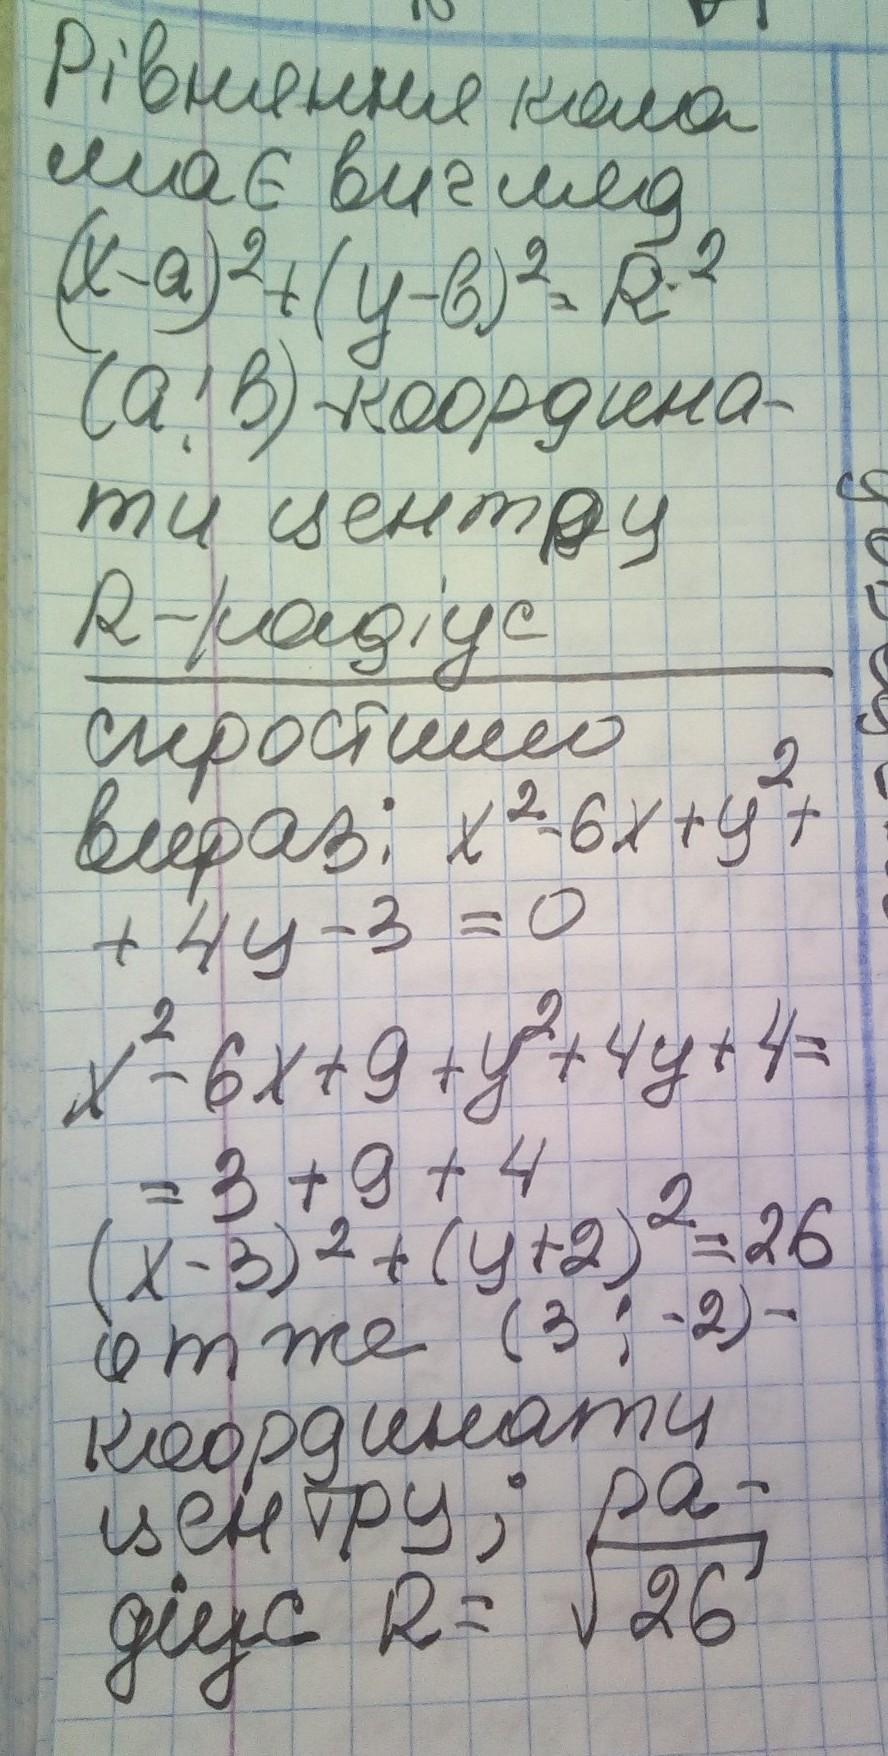 Рівняння кола
має вигляд
(x-a)²+(y-в)²=R²
(a;в)-координа-
ти центру
R-радіус
спростимо
вираз: x²-6x+y²+
+4y-3=0
x²-6x+9+y²+4y+4=
=3+9+4
(x-3)²+(y+2)²=26
отже (3;-2)-
координати
центру; ра-
діус R=√26